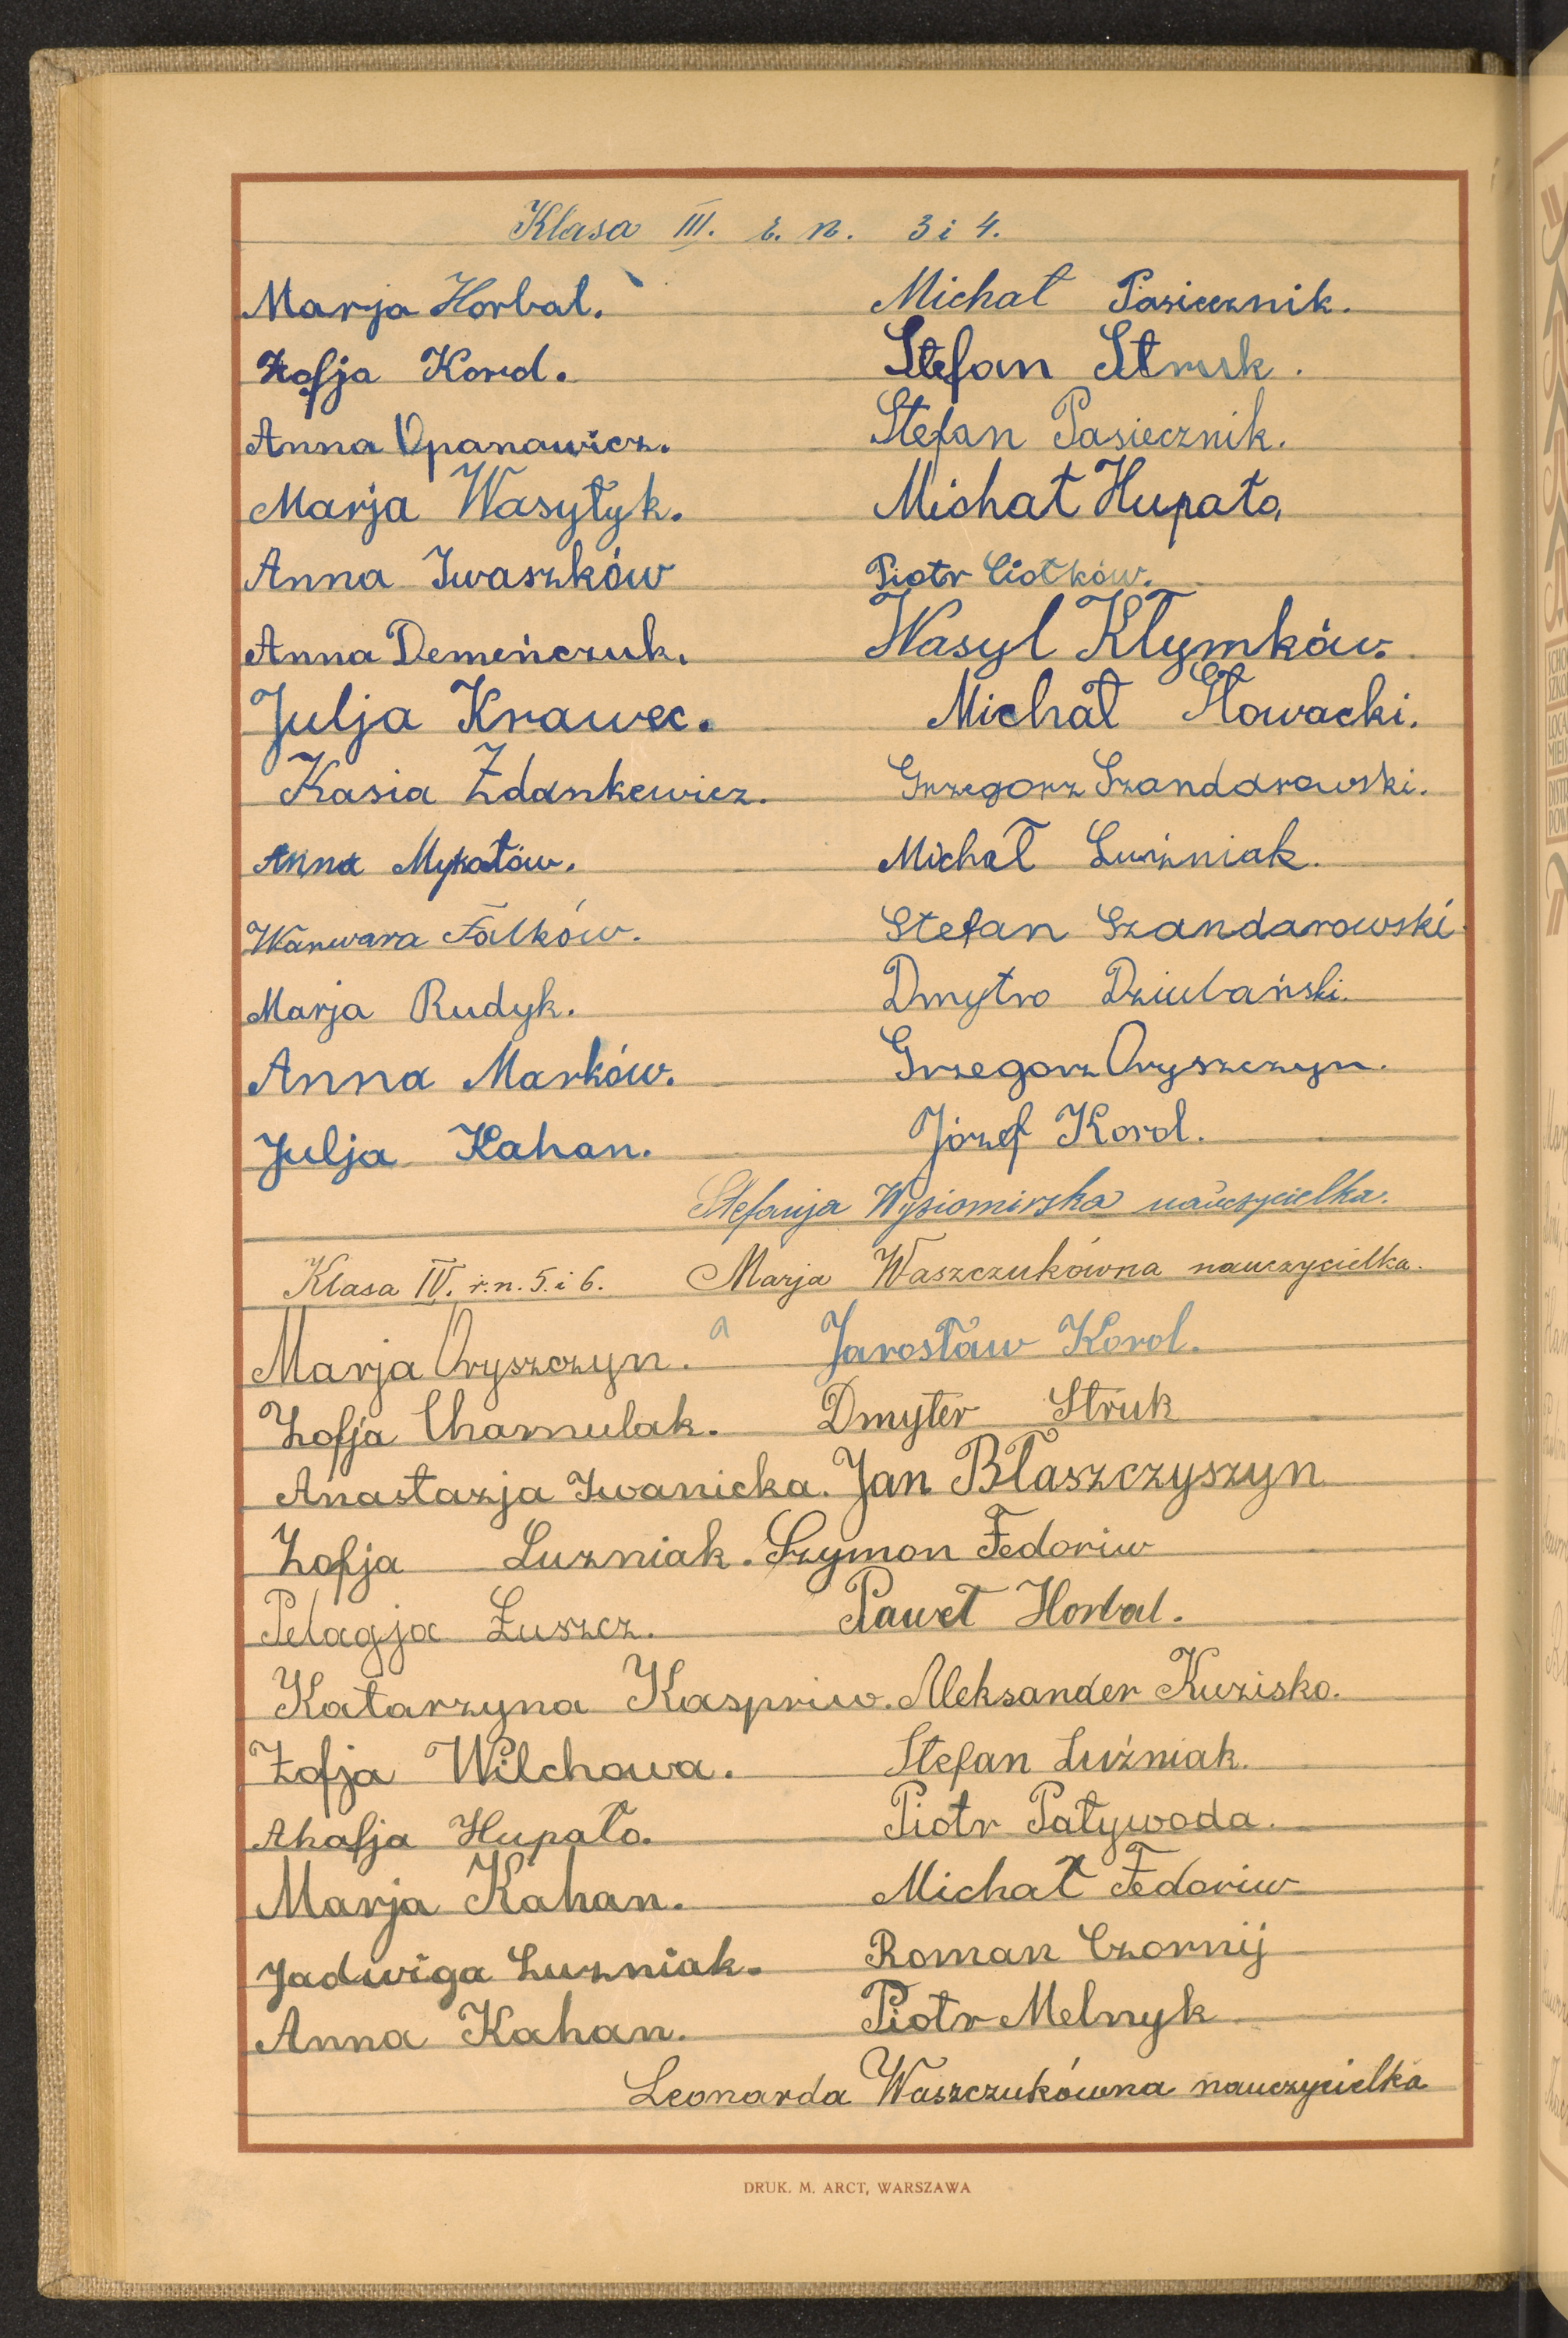 Klasa III. r. n. 3 i 4.
Marja Horbal. Michał Pasiecznik.
Zofja Korol. Stefan Struk.
Anna Opanowicz. Stefan Pasiecznik.
Marja Wasyłyk. Michał Hupało.
Anna Iwaszków Piotr Ciołków.
Anna Demeńczuk. Wasyl Kłymków.
Julja Krawec. Michał Słowacki.
Kasia Zdankewicz. Grzegorz Szandarowski.
Anna Mykałów. Michał Luźniak.
Warwara Falków. Stefan Szandarowski.
Marja Rudyk. Dmytro Dziubański.
Anna Marków. Grzegorz Oryszczyn.
Julja Kahan. Józef Korol.
Stefanja Wysiomirska nauczycielka.
Klasa IV. r. n. 5. i 6. Marja Waszczukówna nauczycielka.
Marja Oryszczyn. Jarosław Korol.
Zofja Charnulak. Dmyter Struk
Anastazja Iwanicka. Jan Błaszczyszyn
Zofja Luzniak. Szymon Fedoriw
Pelagja Łuszcz. Paweł Horbal.
Katarzyna Kaspriw. Aleksander Kuzisko.
Zofja Wilchowa. Stefan Luźniak.
Ahafja Hupało. Piotr Patywoda.
Marja Kahan. Michał Fedoriw
Jadwiga Luzniak. Roman Czornij
Anna Kahan. Piotr Melnyk
Leonarda Waszczukówna nauczycielka
DRUK. M. ARCT, WARSZAWA